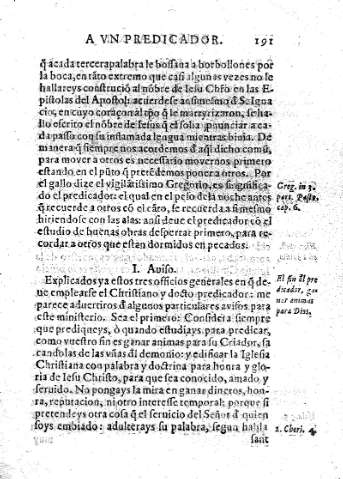 A VN PREDICADOR. 191
q̃ a cada tercera palabra le bossaua a borbollones por
la boca, en tãto extremo que casi algunas vezes no le
hallareys construció al nõbre de Iesu Chřo en las E-
pistolas del Apostol: acuerdese assimesmo d̃ S. Igna-
cio, en cuyo coraçon al tpõ q̃ le martyrizaron, se ha-
llo escrito el nõbre de Iesus q̃ el solia pnunciar a ca-
da passo con su inflamada lengua mientras biuia. De
manera q̃ siempre nos acordemos d̃ aq̃l dicho comũ,
para mouer a otros es necessario mouernos primero
estando en el pũto q̃ pretẽdemos poner a otros. Por
el gallo dize el vigilãtissimo Gregorio, es significa-
do el predicador: el qual en el peso de la noche antes
q̃ recuerde a otros cõ el cãto, se recuerda a si mesmo
hiriendose con las alas: assi deue el predicador cõ el
estudio de buenas obras despertar primero, para re-
cordar a otros que estan dormidos en pecados.
Greg. in 3.
part. Pasto.
cap. 6.
I. Auiso.
Explicados ya estos tres officios generales en q̃ de-
ue emplearse el Christiano y docto predicador: me
parece aduertiros d̃ algunos particulares auisos para
este ministerio. Sea el primero: Considera siempre
que prediqueys, ò quando estudiays para predicar,
como vuestro fin es ganar animas para su Criador, sa
candolas de las vñas del demonio: y edificar la Iglesia
Christiana con palabra y doctrina para honra y glo-
ria de Iesu Christo, para que sea conocido, amado y
seruido. No pongays la mira en ganar dineros, hon-
ra, reputacion, ni otro interesse temporal: porque si
pretendeys otra cosa q̃ el seruicio del Señor d̃ quien
soys embiado: adulterays su palabra, segun habla
El fin d̃l pre
dicador, ga-
nar animas
para Dios.
2. Chori. 4.
sant